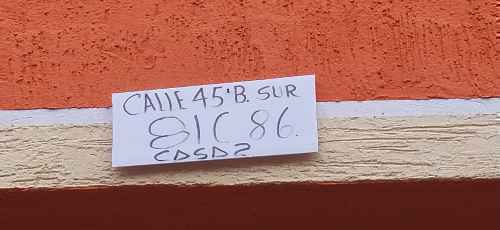 CALLE 45'B. SUR
81C 86.
CASA 2